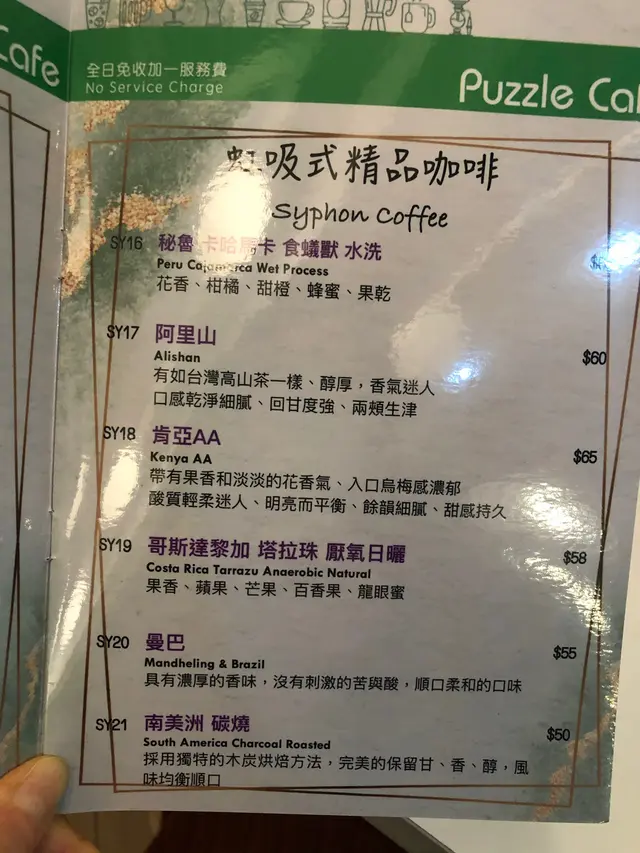 Cafe
全日免收加一服務費
No Service Charge
Puzzle Caf
虹吸式精品咖啡
Syphon Coffee
SY16 秘魯 卡哈馬卡 食蟻獸 水洗
Peru Cajamarca Wet Process
花香、柑橘、甜橙、蜂蜜、果乾
SY17 阿里山 $60
Alishan
有如台灣高山茶一樣、醇厚，香氣迷人
口感乾淨細膩、回甘度強、兩頰生津
SY18 肯亞AA $65
Kenya AA
帶有果香和淡淡的花香氣、入口烏梅感濃郁
酸質輕柔迷人、明亮而平衡、餘韻細膩、甜感持久
SY19 哥斯達黎加 塔拉珠 厭氧日曬 $58
Costa Rica Tarrazu Anaerobic Natural
果香、蘋果、芒果、百香果、龍眼蜜
SY20 曼巴 $55
Mandheling & Brazil
具有濃厚的香味，沒有刺激的苦與酸，順口柔和的口味
SY21 南美洲 碳燒 $50
South America Charcoal Roasted
採用獨特的木炭烘焙方法，完美的保留甘、香、醇，風
味均衡順口